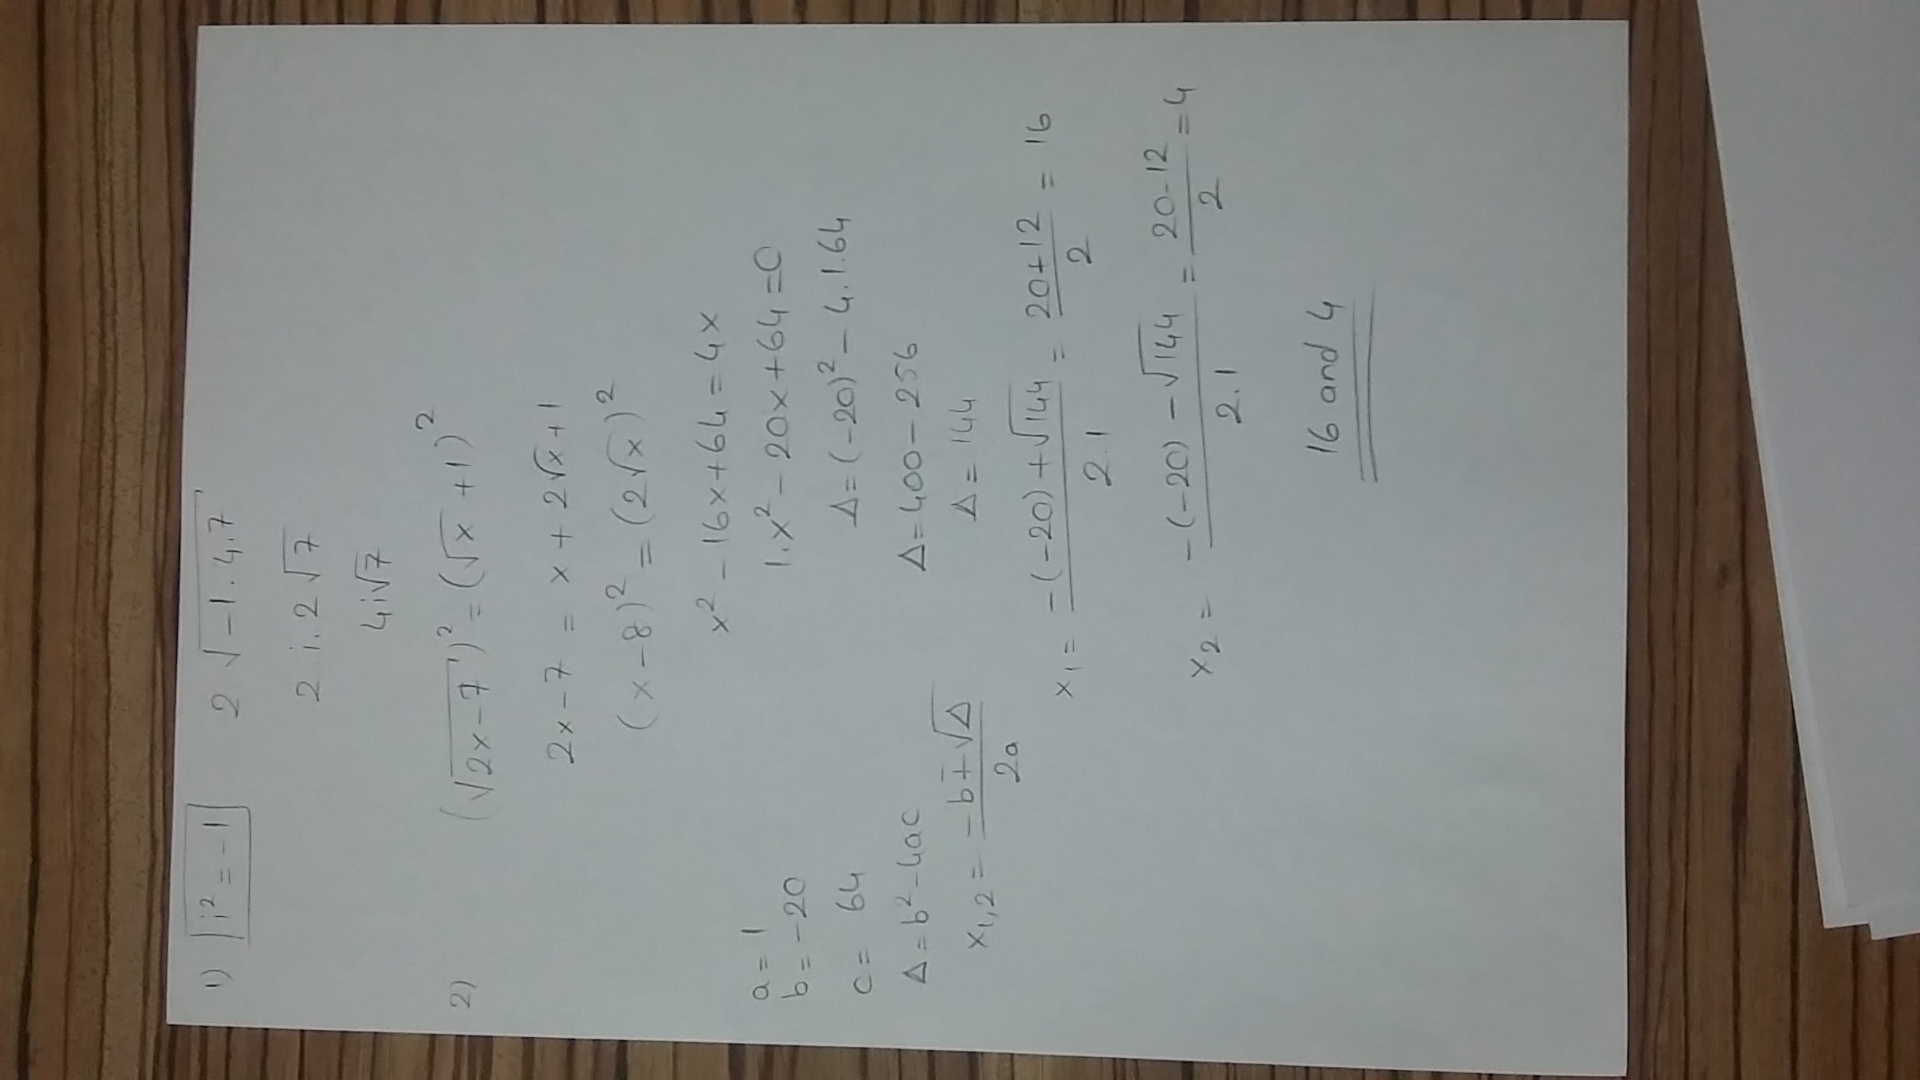 1) i² = -1 2.√-1.4.7
2.i.2√7
4i√7
2) (√2x-7)² = (√x + 1)²
2x-7 = x + 2√x + 1
(x-8)² = (2√x)²
x² - 16x + 64 = 4x
a = 1 1.x² - 20x + 64 = 0
b = -20
c = 64 Δ = (-20)² - 4.1.64
Δ = b² - 4ac Δ = 400 - 256
x1,2 = (-b ∓ √Δ)/2a Δ = 144
x1 = (-(-20) + √144)/2.1 = (20+12)/2 = 16
x2 = (-(-20) - √144)/2.1 = (20-12)/2 = 4
16 and 4